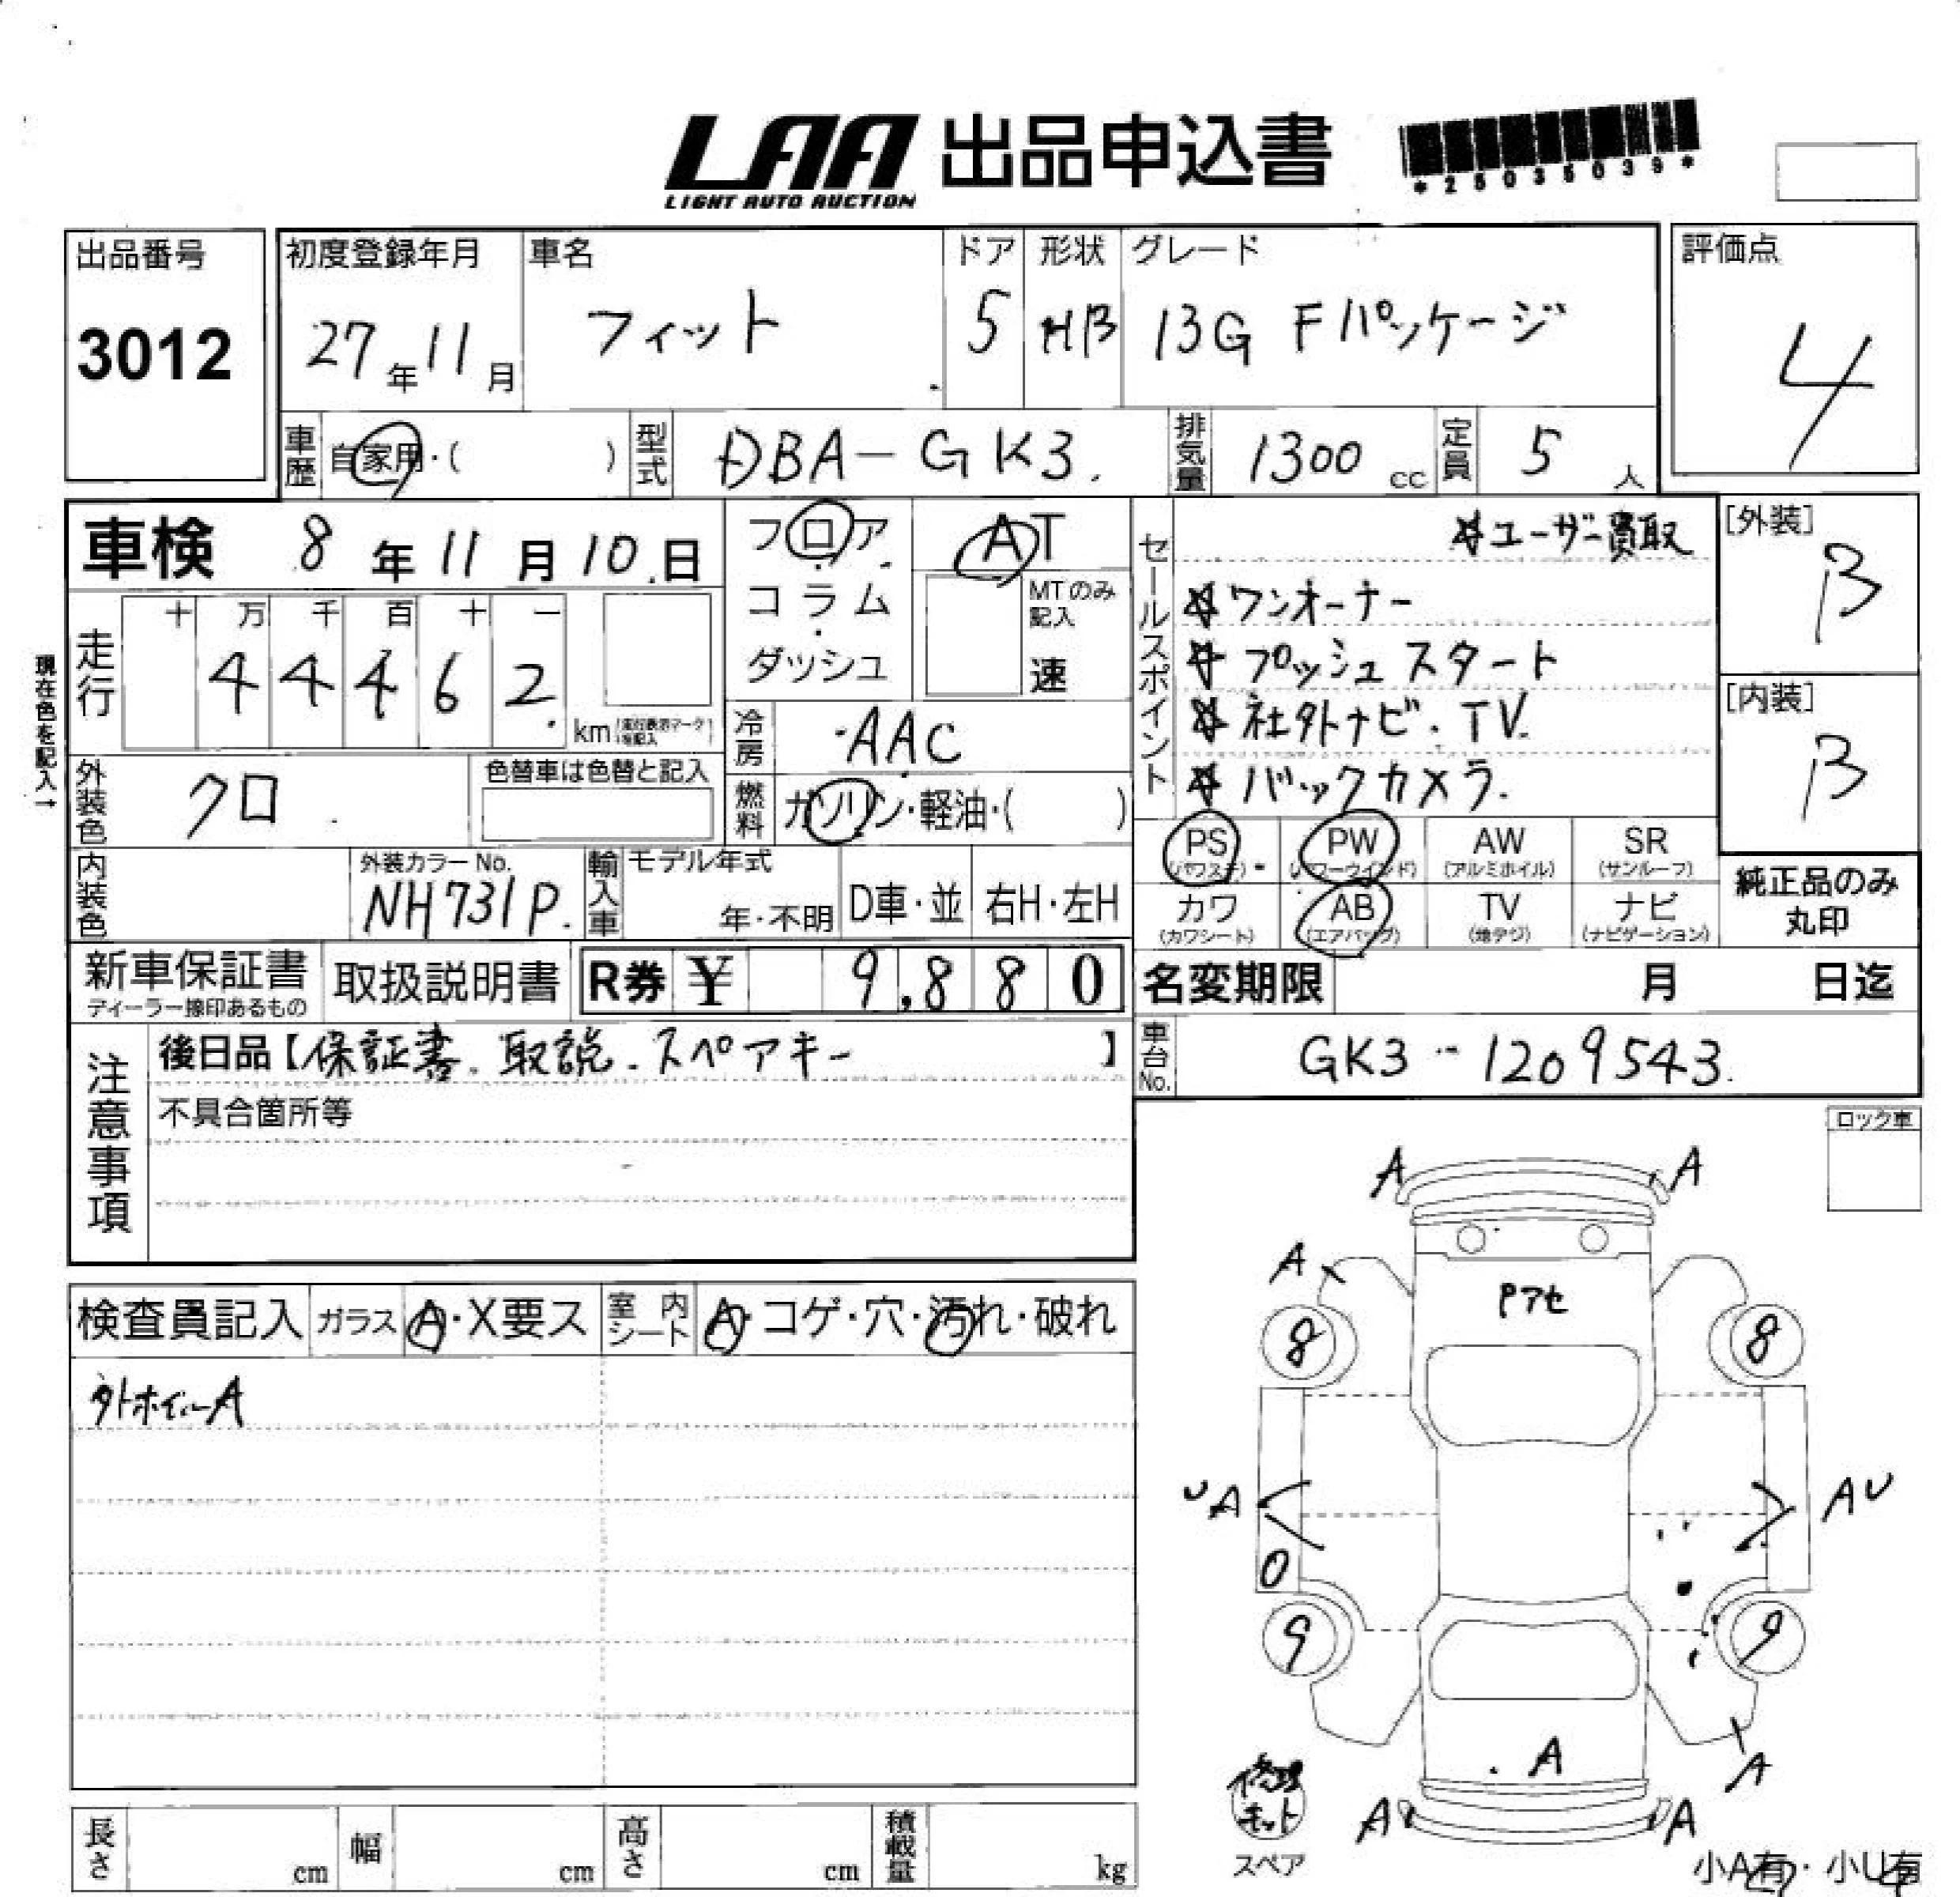 LAA 出品申込書
LIGHT AUTO AUCTION
*25035039*
出品番号 初度登録年月 車名 ドア 形状 グレード 評価点
3012 27年11月 フィット 5 HB 13G Fパッケージ 4
車歴 自家用・( ) 型式 DBA-GK3. 排気量 1300 cc 定員 5 人
車検 8年11月10日 フロア AT
コラム MTのみ記入
ダッシュ 速
走行 十 万 千 百 十 一
4 4 4 6 2 km
現在色を記入→
冷房 AAC
外装色 クロ 色替車は色替と記入
燃料 ガソリン・軽油・( )
セールスポイント ☆ユーザー買取
☆ワンオーナー
☆プッシュスタート
☆社外ナビ・TV.
☆バックカメラ.
[外装] B
[内装] B
内装色 外装カラーNo. NH731P. 輸入車 モデル年式 年・不明 D車・並 右H・左H
PS PW (パワーウインド) AW (アルミホイル) SR (サンルーフ)
カワ (カワシート) AB (エアバッグ) TV (地デジ) ナビ (ナビゲーション)
純正品のみ
丸印
新車保証書 取扱説明書 R券 ¥ 9,880 名変期限 月 日迄
ディーラー捺印あるもの
注意事項 後日品【保証書.取説.スペアキー】
不具合箇所等
車台No. GK3-1209543.
ロック車
検査員記入 ガラス A・X要ス 室内シート A・コゲ・穴・汚れ・破れ
外ホイールA
A A
A
Pアセ
8 8
UA AU
0
9 9
A A
A A
修理キット
スペア
小A有・小U有
長さ cm 幅 cm 高さ cm 積載量 kg